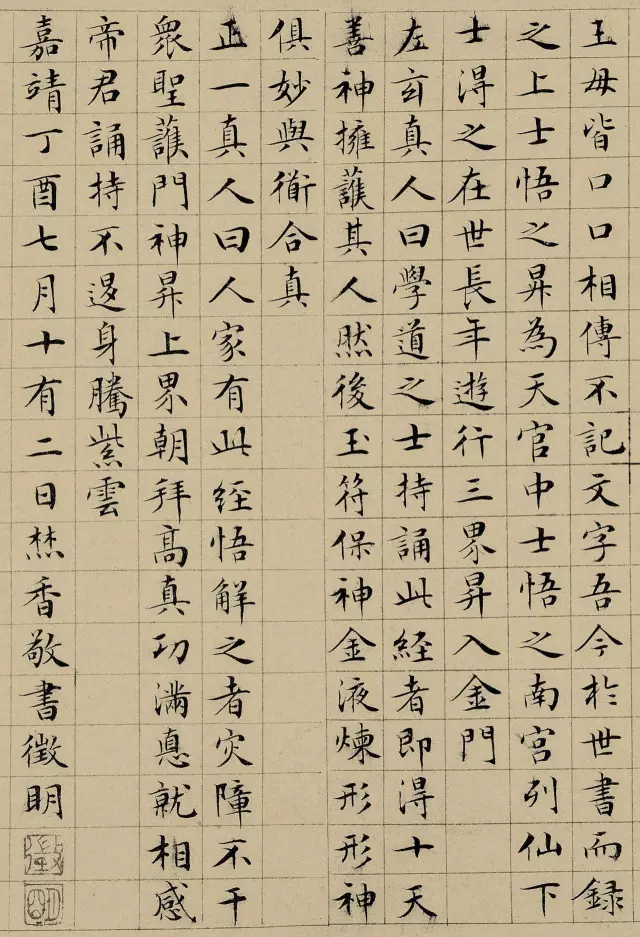 王母皆口口相傳不記文字吾今於世書而録
之上士悟之昇為天官中士悟之南宮列仙下
士得之在世長年遊行三界昇入金門
左玄真人曰學道之士持誦此経者即得十天
善神擁護其人然後玉符保神金液煉形形神
俱妙與衟合真
正一真人曰人家有此經悟解之者灾障不干
衆聖護門神昇上界朝拜高真功滿惪就相感
帝君誦持不退身騰紫雲
嘉靖丁酉七月十有二日焚香敬書徵明
徵
明